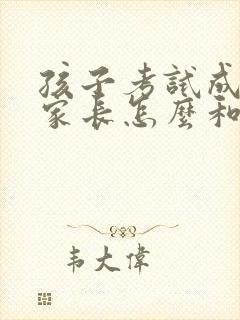 孩子考試成
家長怎麼和
韦大偉